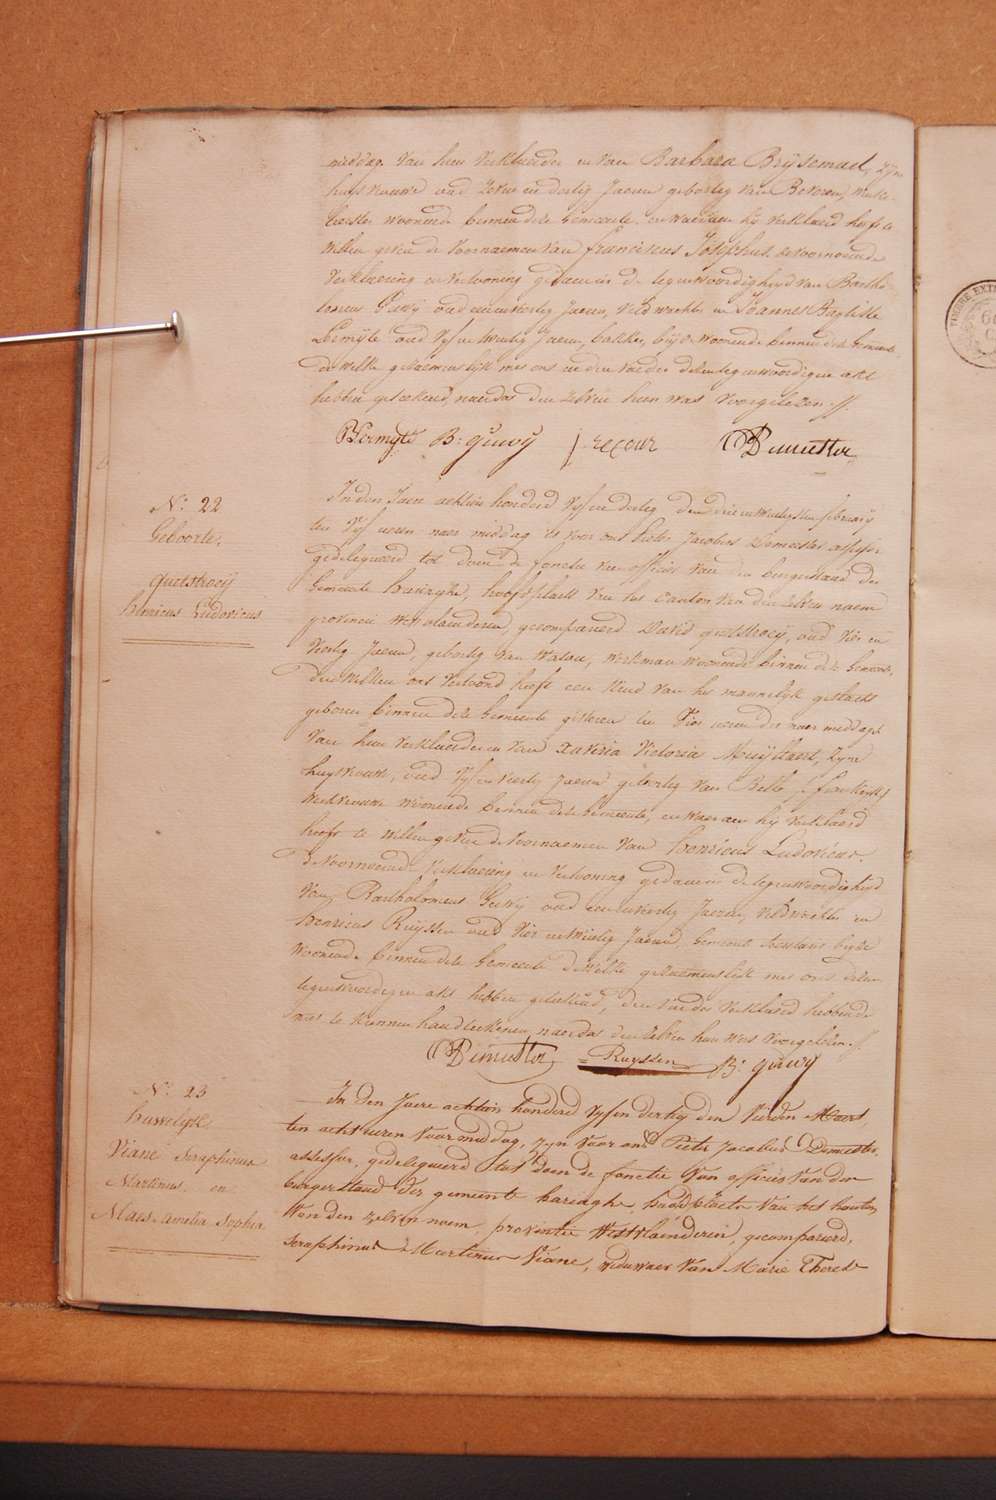 middag van hem verklaerder en van Barbara Brysemael, zyne
huysvrouwe oud zeven en dertig Jaeren geboortig van Beveren, werk-
woonende binnen deze Gemeente, en waeraen hij verklaerd heeft te
willen geven de voornaemen van franciscus Josephus. de voornoemde
verklaering en vertooning gedaen in de tegenwoordigheyd van Bartho
lomeus Guwij oud een en veertig Jaeren, veldwachter en Joannes Baptiste
Lermyte oud vyf en twintig Jaeren, bakker, beyde woonende binnen deze Gemeente
dewelke gezaementlyk met ons en den vaeder deze tegenwoordigen akt
hebben geteekend, naerdat den zelven hun was voorgelezen ./.
B Lermyte B: guwij recour PDemester
N: 22
Geboorte.
quetstroeij
henricus Ludovicus
In den Jaere achtien honderd vyf en dertig den drie en twintigsten february
ten vyf ueren naer middag is voor ons Pieter Jacobus Demester assessor
gedelegueerd tot doen de fonctie van officier van den burgerstand der
Gemeente haringhe, hoofdplaets van het Canton van den zelven naem
provincie Westvlaenderen, gecompareerd David quetstroeij, oud vier en
veertig Jaeren, geboortig van Watou, werkman woonende binnen deze Gemeente,
den welken ons vertoond heeft een kind van het mannelyk geslacht
geboren binnen deze Gemeente gisteren ten vier ueren des naer middags
van hem verklaerder en van Xaveria Victoria Muyllaert, zyne
huysvrouw, oud vyf en veertig Jaeren geboortig van Belle (frankryk)
werkvrouwe woonende binnen deze Gemeente, en waeraen hij verklaerd
heeft te willen geven de voornaemen van henricus Ludovicus.
De voornoemde verklaering en vertooning gedaen in de tegenwoordigheyd
van Bartholomeus Guwij oud een en veertig Jaeren, veldwachter en
henricus Ruyssen oud vier en twintig Jaeren, Gemeente secretaris beyde
woonende binnen deze Gemeente dewelke gezaementlyk met ons dezen
tegenwoordigen akt hebben geteekend, den vaeder verklaerd hebbende
niet te kunnen handteekenen, naerdat den zelven hun was voorgelezen ./.
PDemester Ruyssen B: guwij
N: 23
huwelyk
Viane Seraphinus
Martinus en
Maes amelia Sophia
In den Jaere achtien honderd vyf en dertig den vierden Maert,
ten acht ueren voor middag, zyn voor ons Pieter Jacobus Demester,
assessor, gedelegueerd tot doen de fonctie van officier van den
burgerstand der gemeente haringhe hoofdplaets van het kanton
van den zelven naem, provintie Westvlaenderen, gecompareerd,
Seraphinus Martinus Viane, weduwaer van Marie Therese